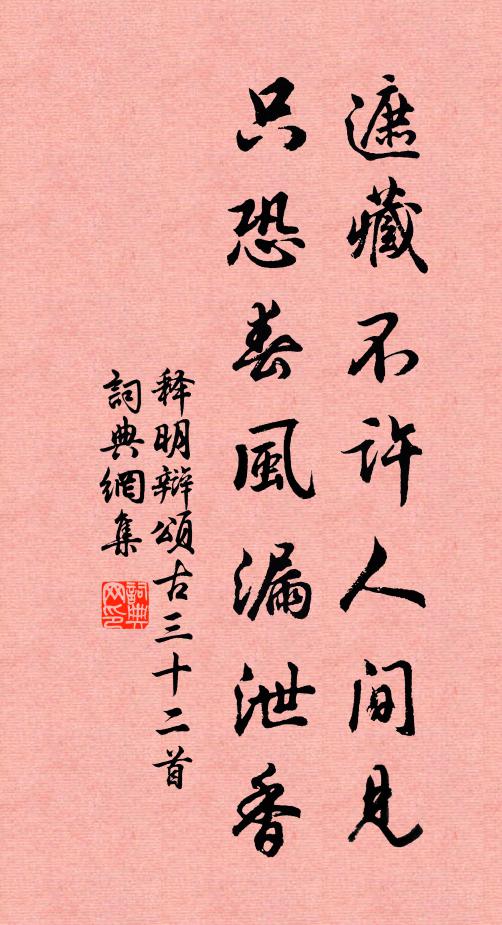 遮藏不許人間見
只恐春風漏泄香
释明辯頌古三十二首
詞典網集
詞典网印